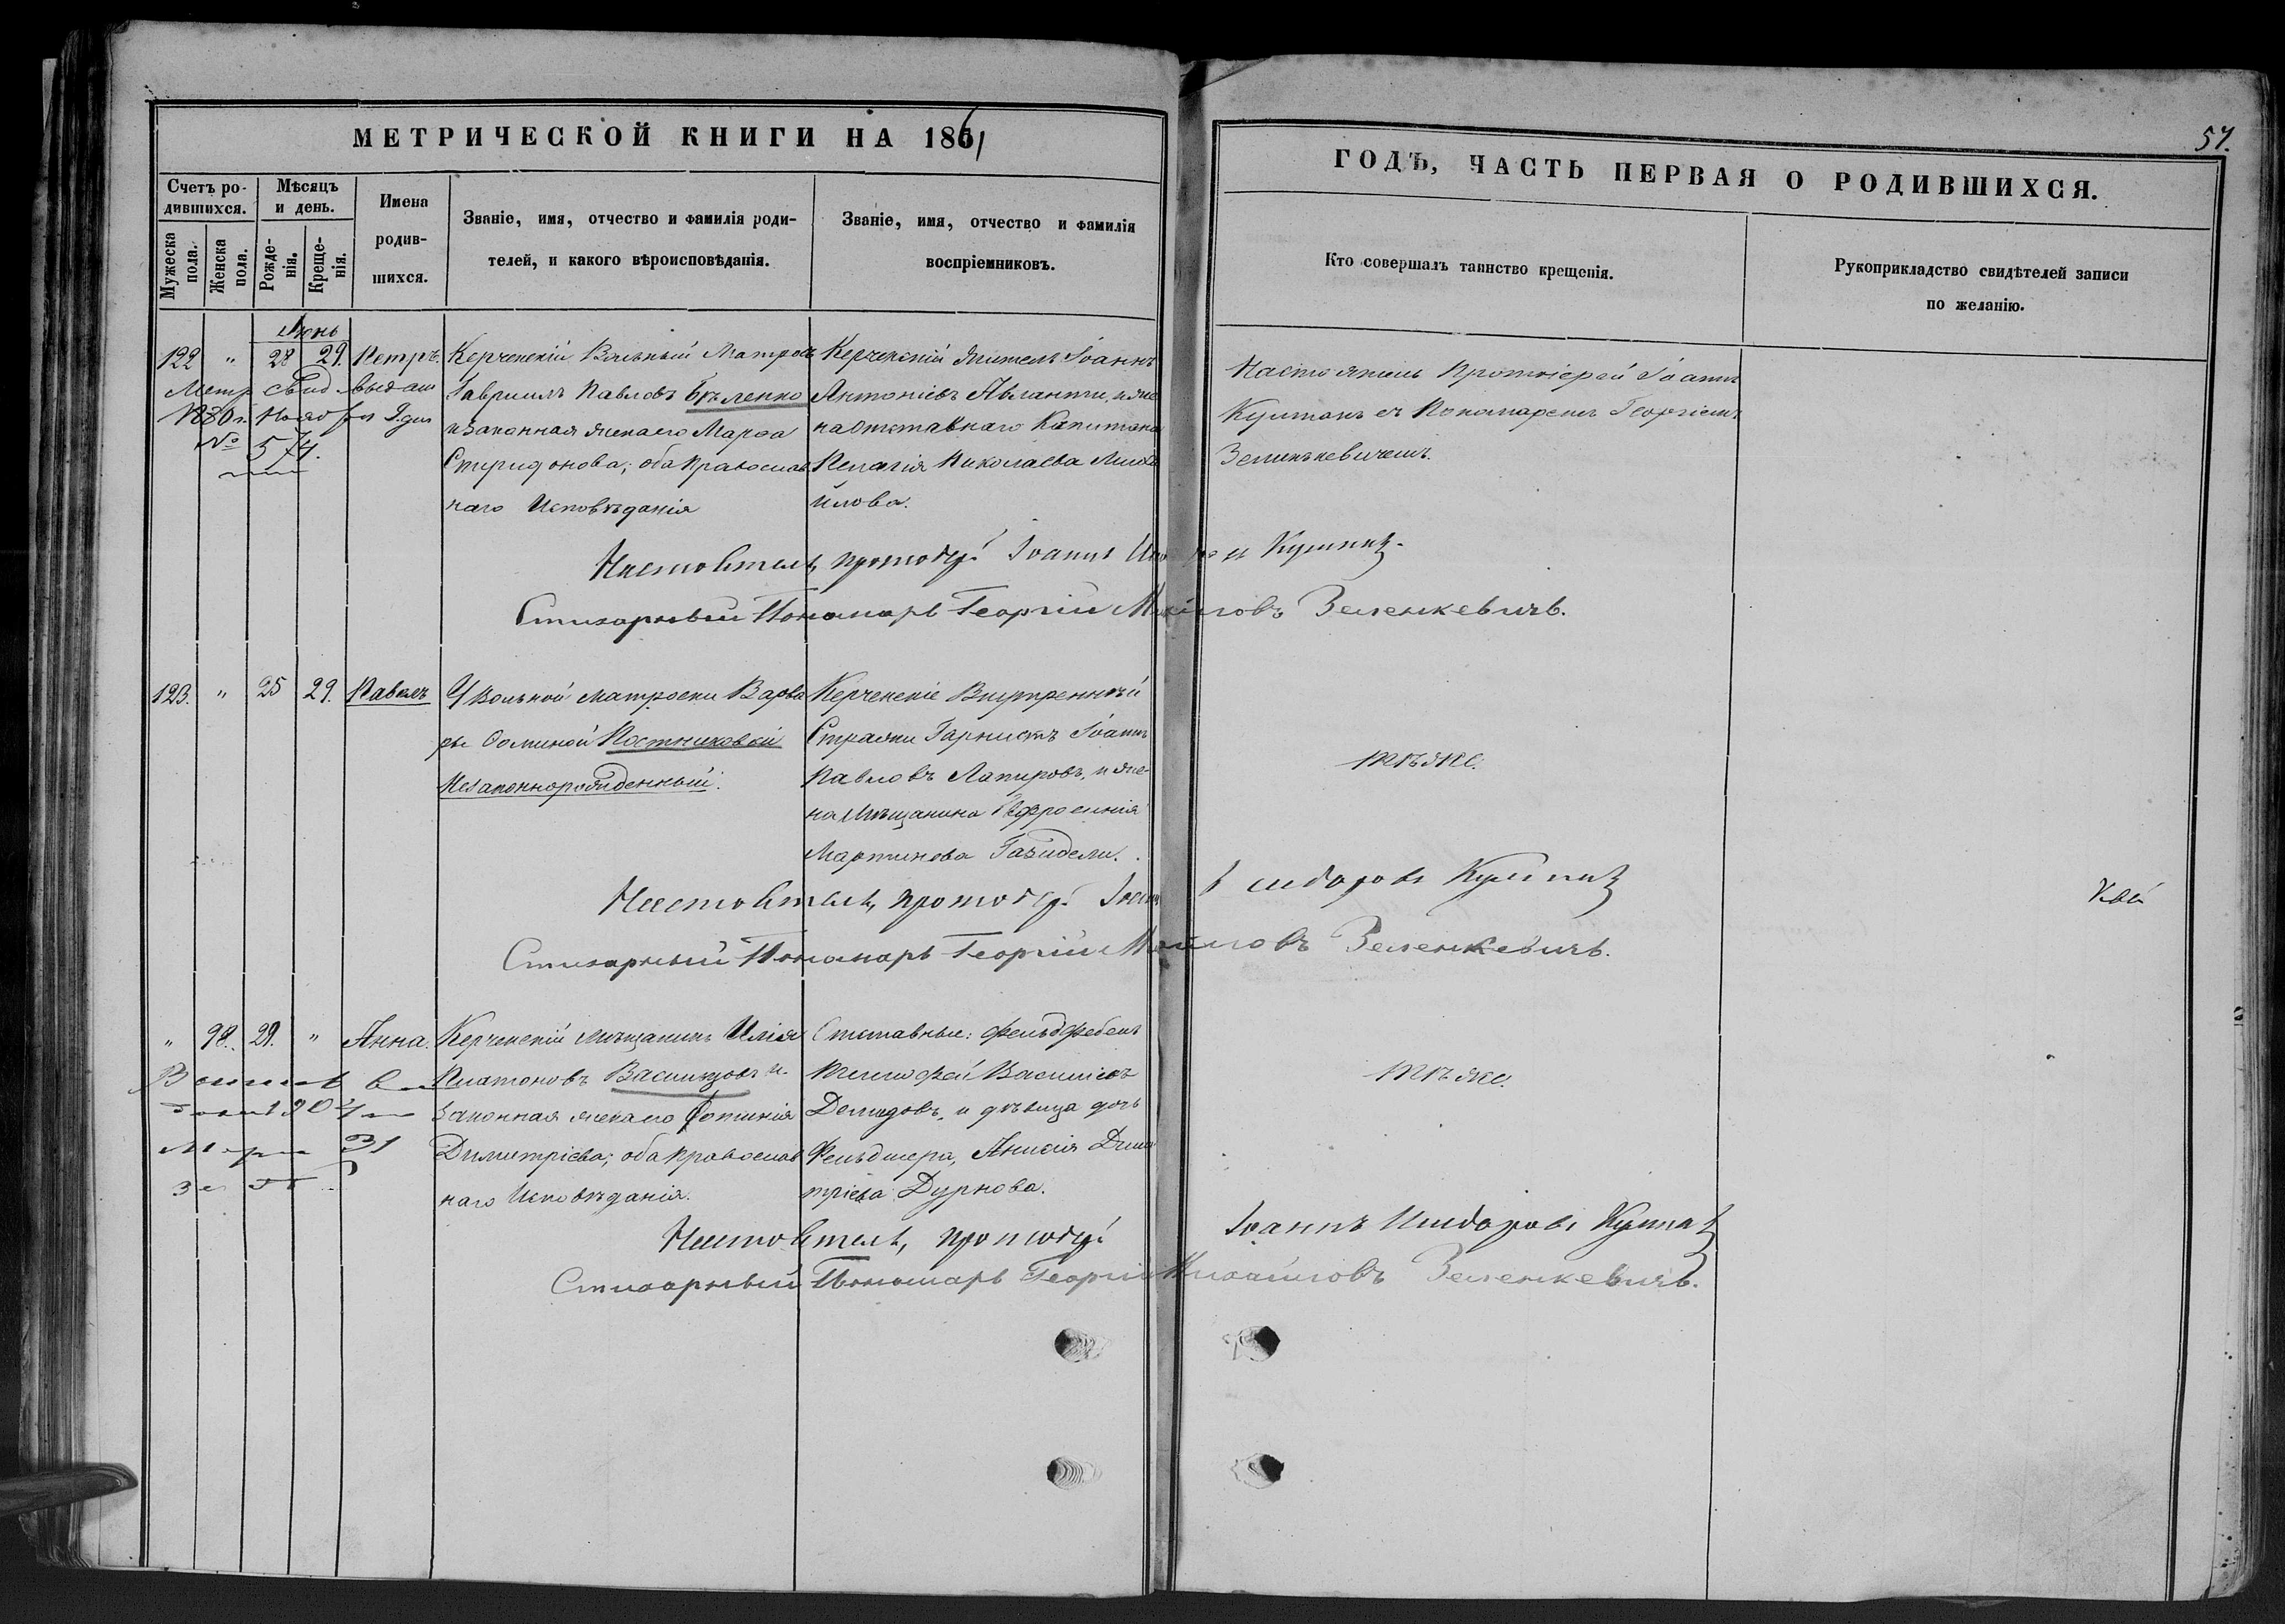 МЕТРИЧЕСКОЙ КНИГИ НА 1861
ГОДЪ, ЧАСТЬ ПЕРВАЯ О РОДИВШИХСЯ.
57.
Счетъ ро-
дившихся.
Мѣсяцъ
и день.
Мужеска
пола.
Женска
пола.
Рожде-
нія.
Креще-
нія.
Имена
родив-
шихся.
Званіе, имя, отчество и фамилія роди-
телей, и какого вѣроисповѣданія.
Званіе, имя, отчество и фамилія
воспріемниковъ.
Кто совершалъ таинство крещенія.
Рукоприкладство свидѣтелей записи
по желанію.
Июнь
122 " 28 29. Петръ.
Метр свид выдан
1880 г. Нояб
№ 574.
Керченскій Вольный Матросъ
Гавріилъ Павловъ Бѣленко
и Законная жена его Марѳа
Спиридонова; оба Православ
наго Исповѣданія
Керченскій житель Іоаннъ
Антоніевъ Авланти, и же
на Отставнаго Капитана
Пелагія Николаева Миха
йлова.
Настоятель Протоіерей Іоаннъ
съ Пономаремъ Георгіемъ
Зеленкевичемъ.
Настоятель, протоіер. Іоаннъ
Стихарный Пономарь Георгій Михайловъ Зеленкевичъ.
123. " 25 29. Павелъ
У Вольной матроски Варва
ры Ѳоминой Постниковой
Незаконнорожденный.
Керченскіе Внутренней
Стражи Горнистъ Іоаннъ
Павловъ Лапировъ, и же-
на Мѣщанина Евфросинія
Мартинова
тѣже.
Настоятель, протоіер. Іоаннъ Исидоровъ
Стихарный Пономарь Георгій Михайловъ Зеленкевичъ.
" 98. 29. " Анна.
Керченскій мѣщанинъ Илія
Платоновъ Васильцовъ и
Законная жена его Фотинія
Димитріева; оба Православ
наго Исповѣданія.
Отставные: Фельдфебель
Тимофей Васильевъ
Демидовъ, и дѣвица дочь
Фельдшера, Анисія Дими
тріева Дурнова.
тѣже.
Марта 31
Настоятель, протоіер. Іоаннъ Исидоровъ
Стихарный Пономарь Георгій Михайловъ Зеленкевичъ.